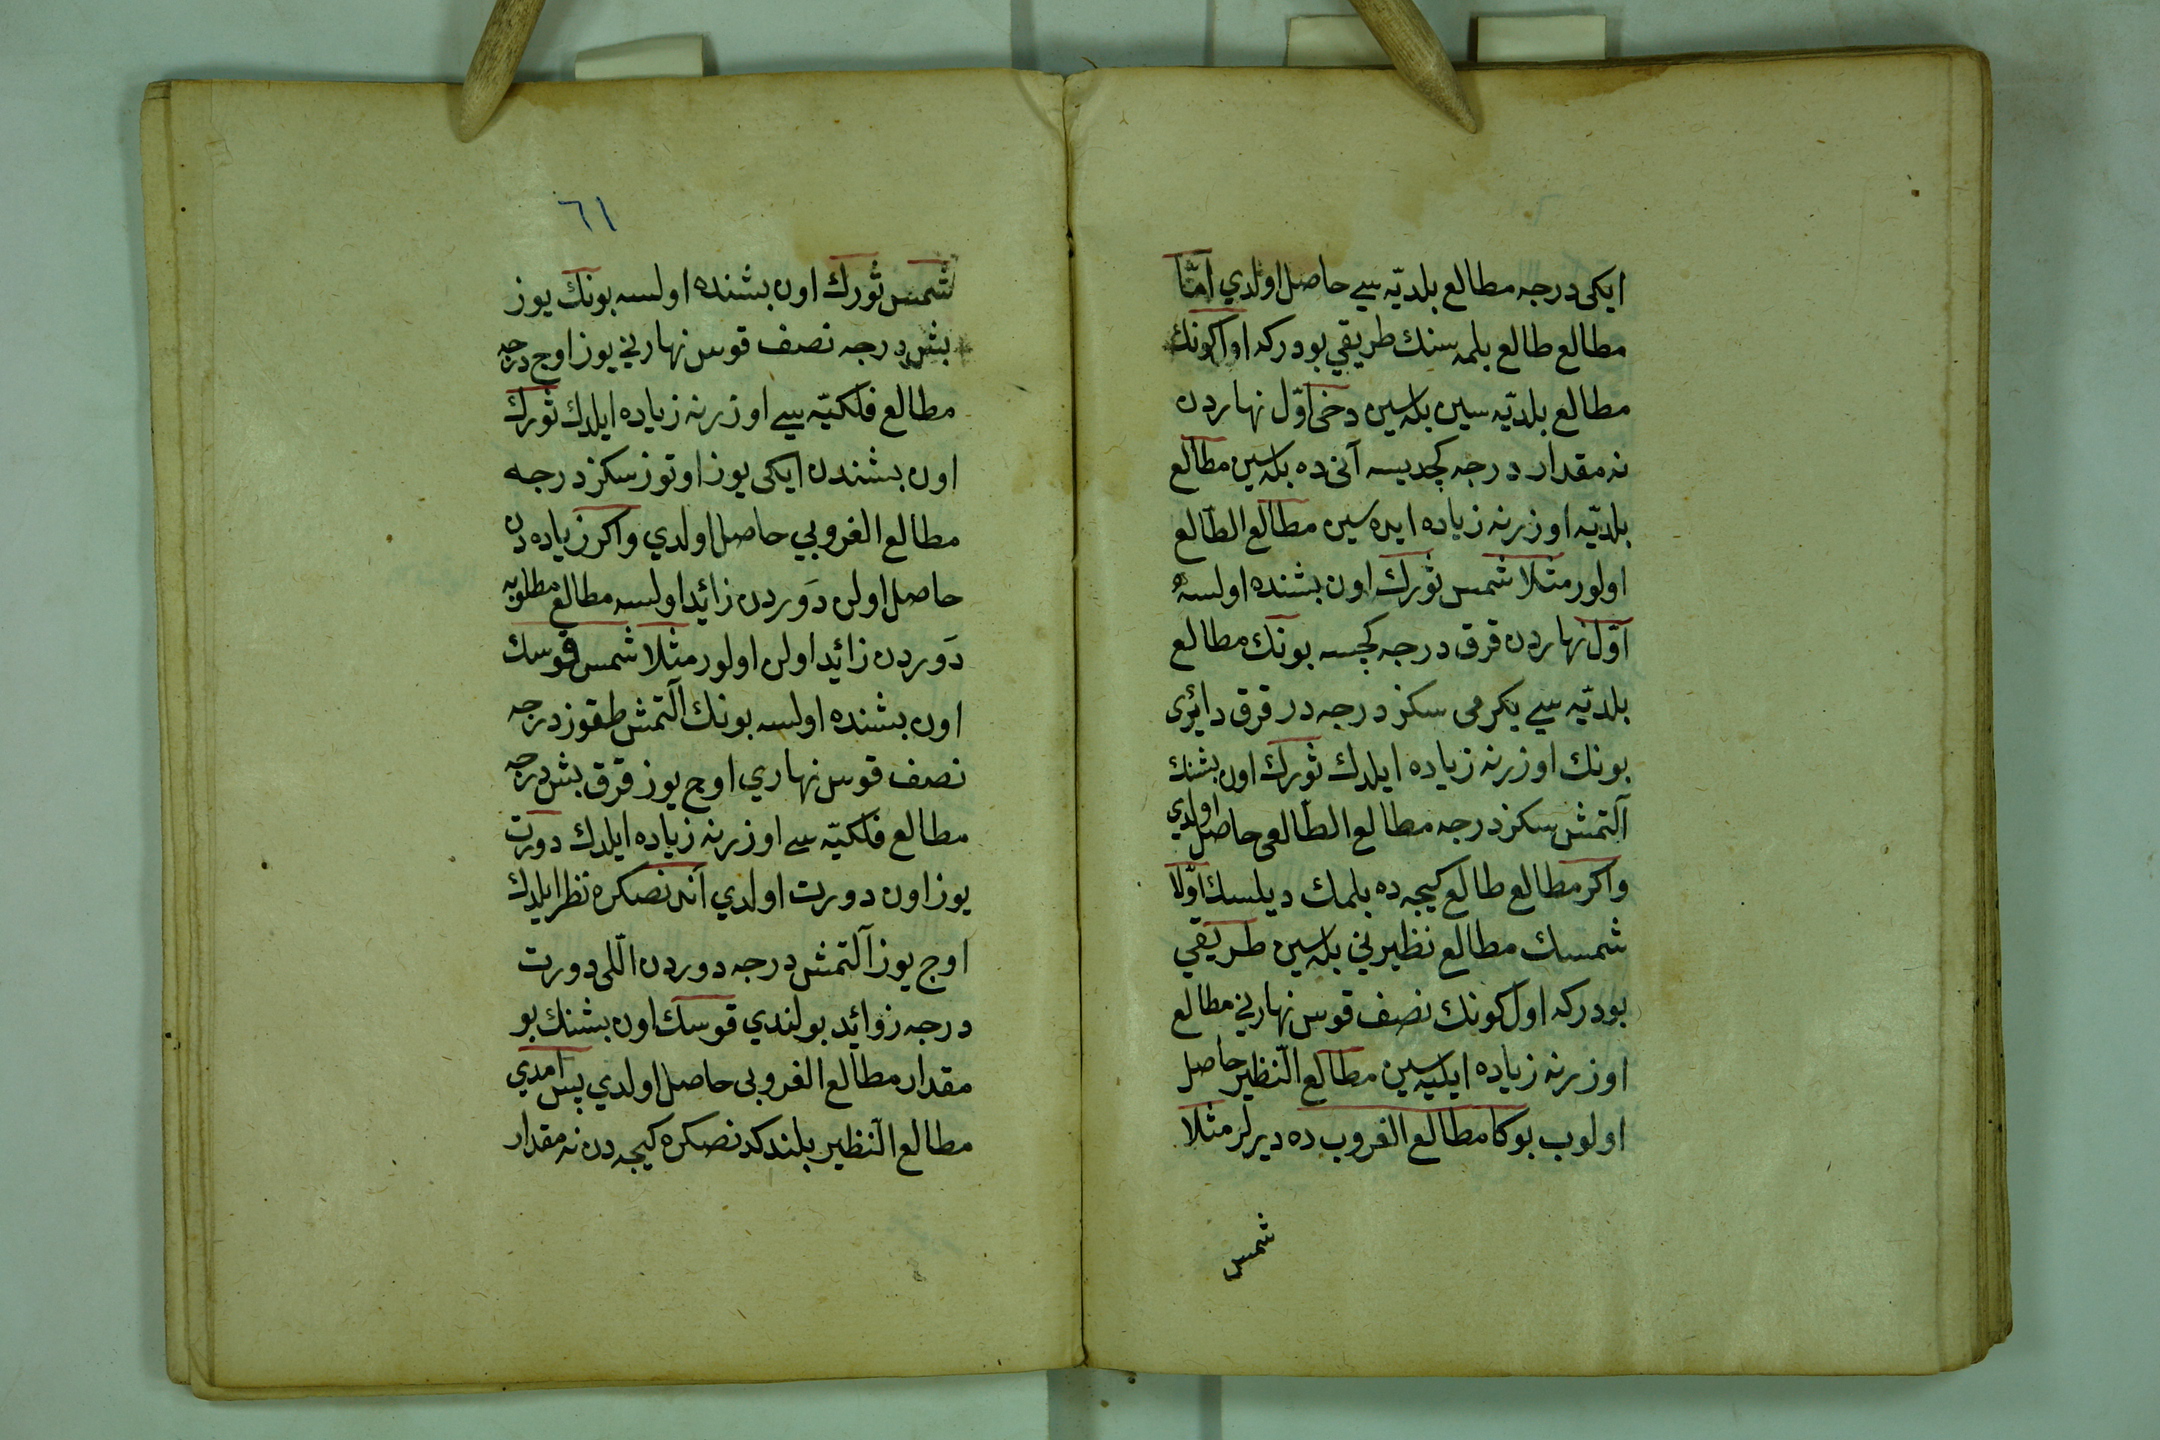 ايكى درجه مطالع بلديّه سى حاصل اولدي امّا
مطالع طالع بلمه سنك طريقي بودركه اول كونك
مطالع بلديّه سين بله سين دخى اوّل نهاردن
نه مقدار درجه كچديسه آنى ده بله سين مطالع
بلديّه اوزرنه زياده ايده سين مطالع الطّالع
اولور مثلا شمس ثورك اون بشنده اولسه
اوّل نهاردن قرق درجه كچسه بونك مطالع
بلديّه سى يكرمى سكز درجه در قرق دايرى
بونك اوزرنه زياده ايلدك ثورك اون بشنك
آلتمش سكز درجه مطالع الطّالعى حاصل اولدي
واكر مطالع طالع كيجه ده بلمك ديلسك اوّلا
شمسك مطالع نظيرني بله سين طريقي
بودركه اول كونك نصف قوس نهارني مطالع
اوزرنه زياده ايليه سين مطالع النّظير حاصل
اولوب بوكا مطالع الغروب ده ديرلر مثلا
شمس
٦١
شمس ثورك اون بشنده اولسه بونك يوز
بش درجه نصف قوس نهارني يوز اوج درجه
مطالع فلكيّه سى اوزرنه زياده ايلدك ثورك
اون بشندن ايكى يوز اوتوز سكز درجه
مطالع الغروبي حاصل اولدي واكر زياده دن
حاصل اولن دَوردن زائد اولسه مطالع مطلوبه
دَوردن زائد اولن اولور مثلا شمس قوسك
اون بشنده اولسه بونك آلتمش طقوز درجه
نصف قوس نهاري اوج يوز قرق بش درجه
مطالع فلكيّه سى اوزرنه زياده ايلدك دورت
يوز اون دورت اولدي آندنصكره نظر ايلدك
اوج يوز آلتمش درجه دوردن اللى دورت
درجه زوائد بولندي قوسك اون بشنك بو
مقدار مطالع الغروبى حاصل اولدي پس امدي
مطالع النّظير بلندكدنصكره كيجه دن نه مقدار